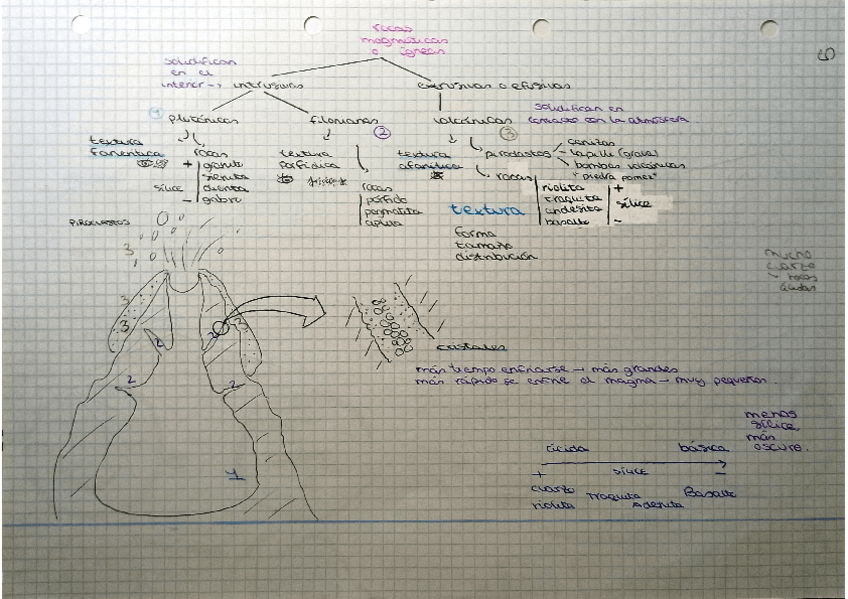 rocas
magmáticas
o ígneas
solidifican
en el
interior → intrusivas
extrusivas o efusivas
1 plutónicas
filonianas
2
volcánicas
3
solidifican en
contacto con la atmósfera
textura
fanerítica
rocas
+ granito
sienita
sílice diorita
- gabro
textura
porfídica
rocas
pórfido
pegmatita
aplita
textura
afanítica
piroclastos
cenizas
lapilli (grava)
bombas volcánicas
"piedra pomez"
rocas
riolita +
traquita
andesita sílice
basalto -
textura
forma
tamaño
distribución
PIROCLASTOS
3
3
3
3
2
2
2
2
1
mucho
cuarzo
rocas
ácidas
cristales
más tiempo enfriarse → más grandes
más rápido se enfríe el magma → muy pequeños.
menos
sílice,
más
oscura.
ácida básica
+ sílice -
cuarzo Traquita Basalto
riolita